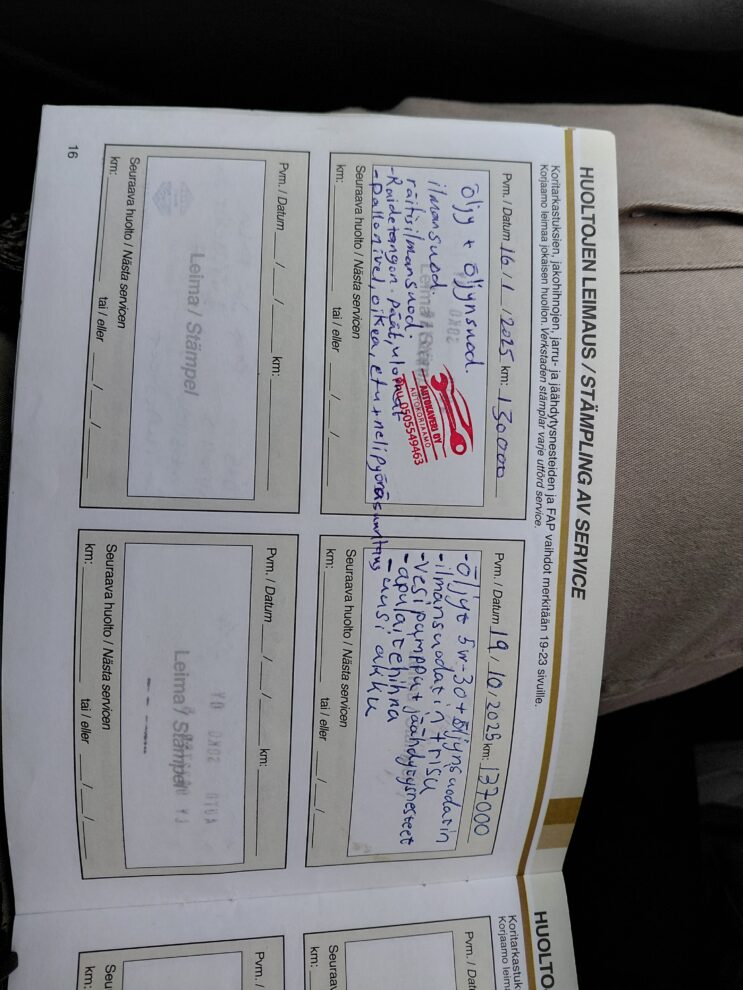 HUOLTOJEN LEIMAUS / STÄMPLING AV SERVICE
Koritarkastuksien, jakohihnojen, jarru- ja jäähdytysnesteiden ja FAP vaihdot merkitään 19-23 sivuille.
Korjaamo leimaa jokaisen huollon. Verkstaden stämplar varje utförd service.
Pvm. / Datum 16 / 1 / 2025 km: 130000
Öljy + Öljynsuod.
ilmansuod.
räitisilmansuod.
-Raidetangon päät, ulommat
-pallonivel, oikea, etu + nelipyöräsuuntaus
AUTOKAVERI OY
AUTOKORJAAMO
Puh.0505549463
Seuraava huolto / Nästa servicen
km: tai / eller / /
Pvm. / Datum 19 / 10 / 2025 km: 137000
-Öljyt 5w-30 + Öljynsuodatin
-ilmansuodatin + raisu
-vesipumppu + jäähdytysnesteet
-apulaitehihna
-uusi akku
Seuraava huolto / Nästa servicen
km: tai / eller / /
Pvm. / Datum / / km:
Leima / Stämpel
Seuraava huolto / Nästa servicen
km: tai / eller / /
Pvm. / Datum / / km:
Leima / Stämpel
Seuraava huolto / Nästa servicen
km: tai / eller / /
16
HUOLTO
Koritarkastuk
Korjaamo leim
Pvm. / Datu
Seuraav
km:
Pvm. /
Seu
km: